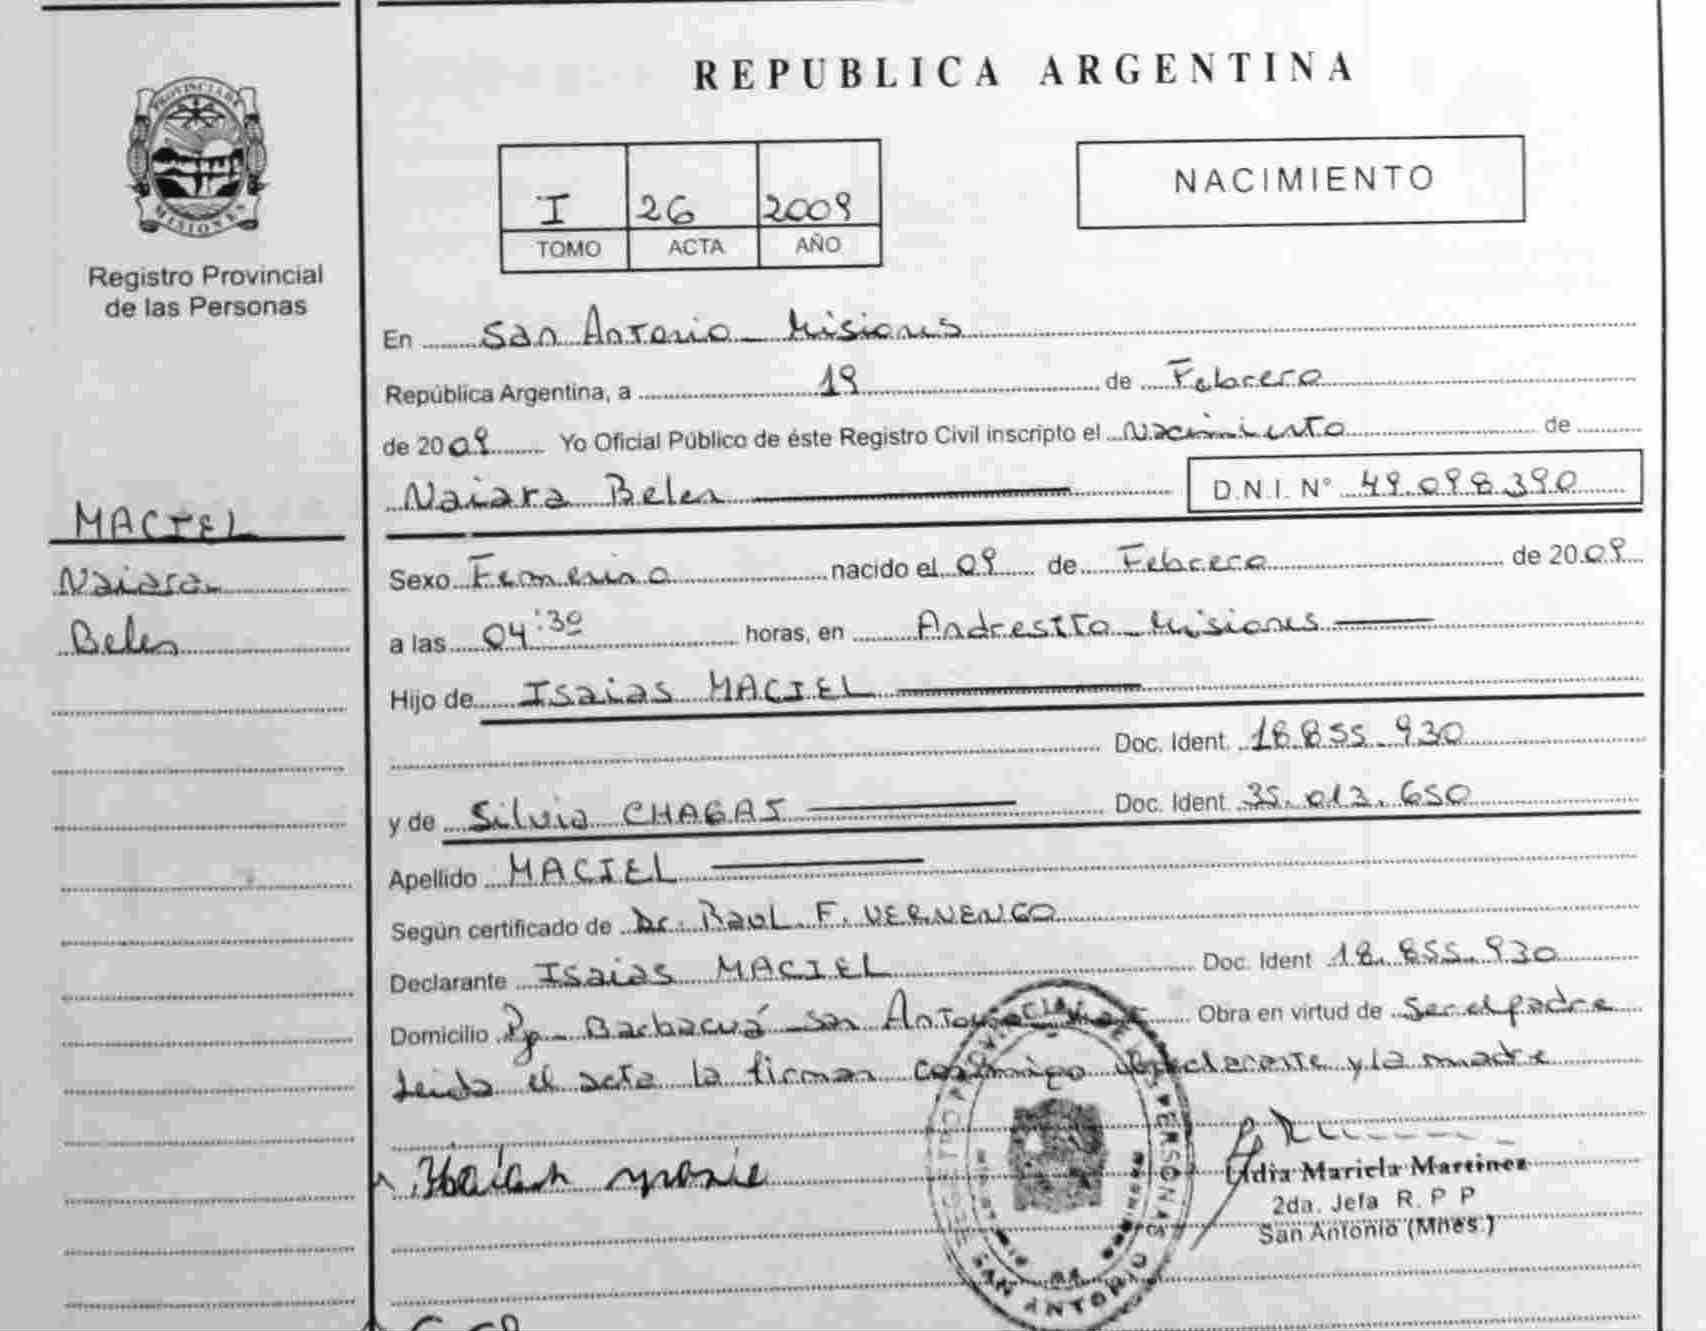 REPUBLICA ARGENTINA
PROVINCIA DE
MISIONES
Registro Provincial
de las Personas
I 26 2009
TOMO ACTA AÑO
NACIMIENTO
MACIEL
Naiara
Belen
En San Antonio - Misiones
República Argentina, a 19 de Febrero
de 2009 Yo Oficial Público de éste Registro Civil inscripto el Nacimiento de
Naiara Belen D.N.I. N° 49.098.390
Sexo Femenino nacido el 09 de Febrero de 2009
a las 04:30 horas, en Andresito - Misiones
Hijo de Isaias MACIEL
Doc. Ident. 18.855.930
y de Silvia CHAGAS Doc. Ident. 35.013.650
Apellido MACIEL
Según certificado de Dr. Raul F. VERNENGO
Declarante Isaias MACIEL Doc. Ident 18.855.930
Domicilio Barbacuá - San Antonio Obra en virtud de ser el padre
Leida el acta la firman conmigo declarante y la madre
Lidia Mariela Martinez
2da. Jefa R. P P
San Antonio (Mnes.)
PERSONAS
SAN ANTONIO